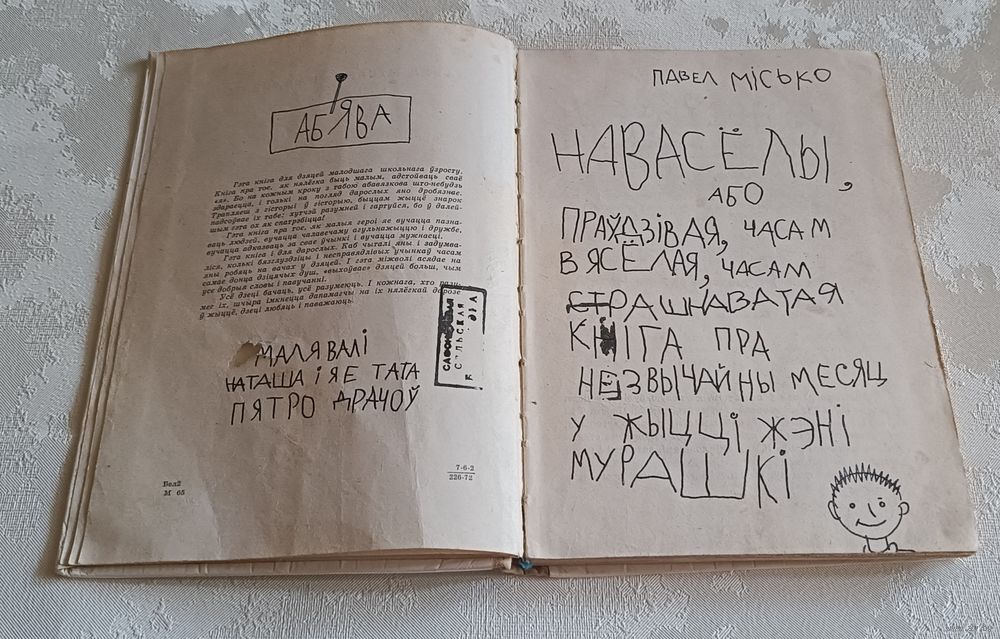 АБ'ЯВА
Гэта кніга для дзяцей малодшага школьнага ўзросту.
Кніга пра тое, як нялёгка быць малым, адстойваць сваё
«я». Бо на кожным кроку з табою абавязкова што-небудзь
здараецца, і толькі на погляд дарослых яно дробязнае.
Трапляеш з гісторыі ў гісторыю, быццам жыццё знарок
падсоўвае іх табе: хутчэй разумней і гартуйся, бо ў далей-
шым гэта ох як спатрэбіцца!
Гэта кніга пра тое, як малыя героі яе вучацца пазна-
ваць людзей, вучацца чалавечаму агульнажыццю і дружбе,
вучацца адказваць за свае ўчынкі і вучацца мужнасці.
Гэта кніга і для дарослых. Каб чыталі яны і задумва-
ліся, колькі бязглуздзіцы і несправядлівых учынкаў часам
яны робяць на вачах у дзяцей. І гэта міжволі асядае на
самае донца дзіцячых душ, «выхоўвае» дзяцей больш, чым
усе добрыя словы і павучанні.
Усё дзеці бачаць, усё разумеюць. І кожнага, хто разу-
мее іх, шчыра імкнецца дапамагчы на іх нялёгкай дарозе
ў жыццё, дзеці любяць і паважаюць.
МАЛЯВАЛІ
НАТАША І ЯЕ ТАТА
ПЯТРО ДРАЧОЎ
СЕЛЬСКАЯ
Бел2
М 65
7-6-2
226-72
ПАВЕЛ МІСЬКО
НАВАСЁЛЫ,
АБО
ПРАЎДЗІВАЯ, ЧАСАМ
ВЯСЁЛАЯ, ЧАСАМ
СТРАШНАВАТАЯ
КНІГА ПРА
НЕЗВЫЧАЙНЫ МЕСЯЦ
У ЖЫЦЦІ ЖЭНІ
МУРАШКІ